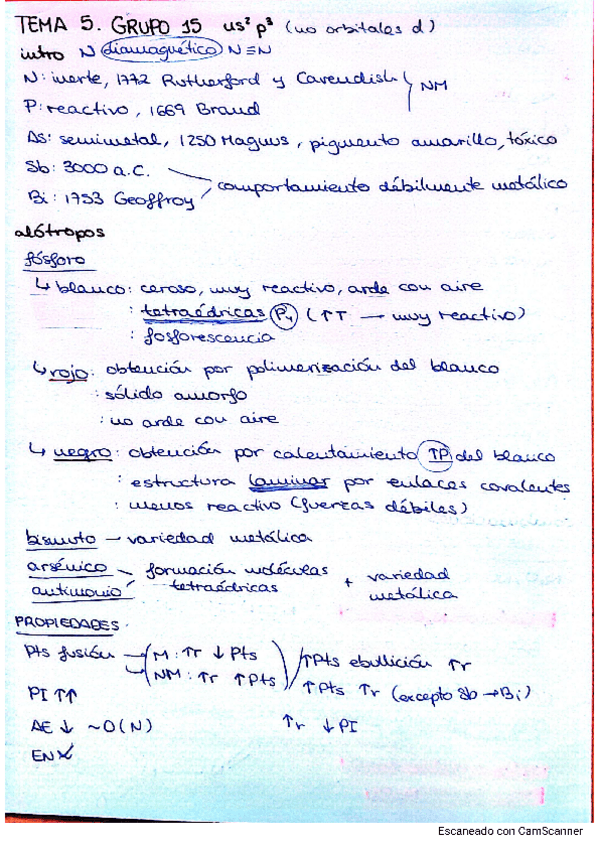 TEMA 5. GRUPO 15 ns² p³ (no orbitales d)
intro N diamagnético N≡N
N: inerte, 1772 Rutherford y Cavendish
NM
P: reactivo, 1669 Brand
As: semimetal, 1250 Magnus, pigmento amarillo, tóxico
Sb: 3000 a.C.
comportamiento débilmente metálico
Bi: 1753 Geoffroy
alótropos
fósforo
↳ blanco: ceroso, muy reactivo, arde con aire
: tetraédricas P₄ (↑T → muy reactivo)
: fosforescencia
↳ rojo: obtención por polimerización del blanco
: sólido amorfo
: no arde con aire
↳ negro: obtención por calentamiento ↑P del blanco
: estructura laminar por enlaces covalentes
: menos reactivo (fuerzas débiles)
bismuto – variedad metálica
arsénico – formación moléculas
antimonio tetraédricas + variedad metálica
PROPIEDADES.
Pts fusión → M: ↑r ↓Pts
→ NM: ↑r ↑Pts
↑Pts ebullición ↑r
PI ↑↑
↑Pts ↑r (excepto Sb → Bi)
AE ↓ ~0 (N)
↑r ↓PI
EN
Escaneado con CamScanner